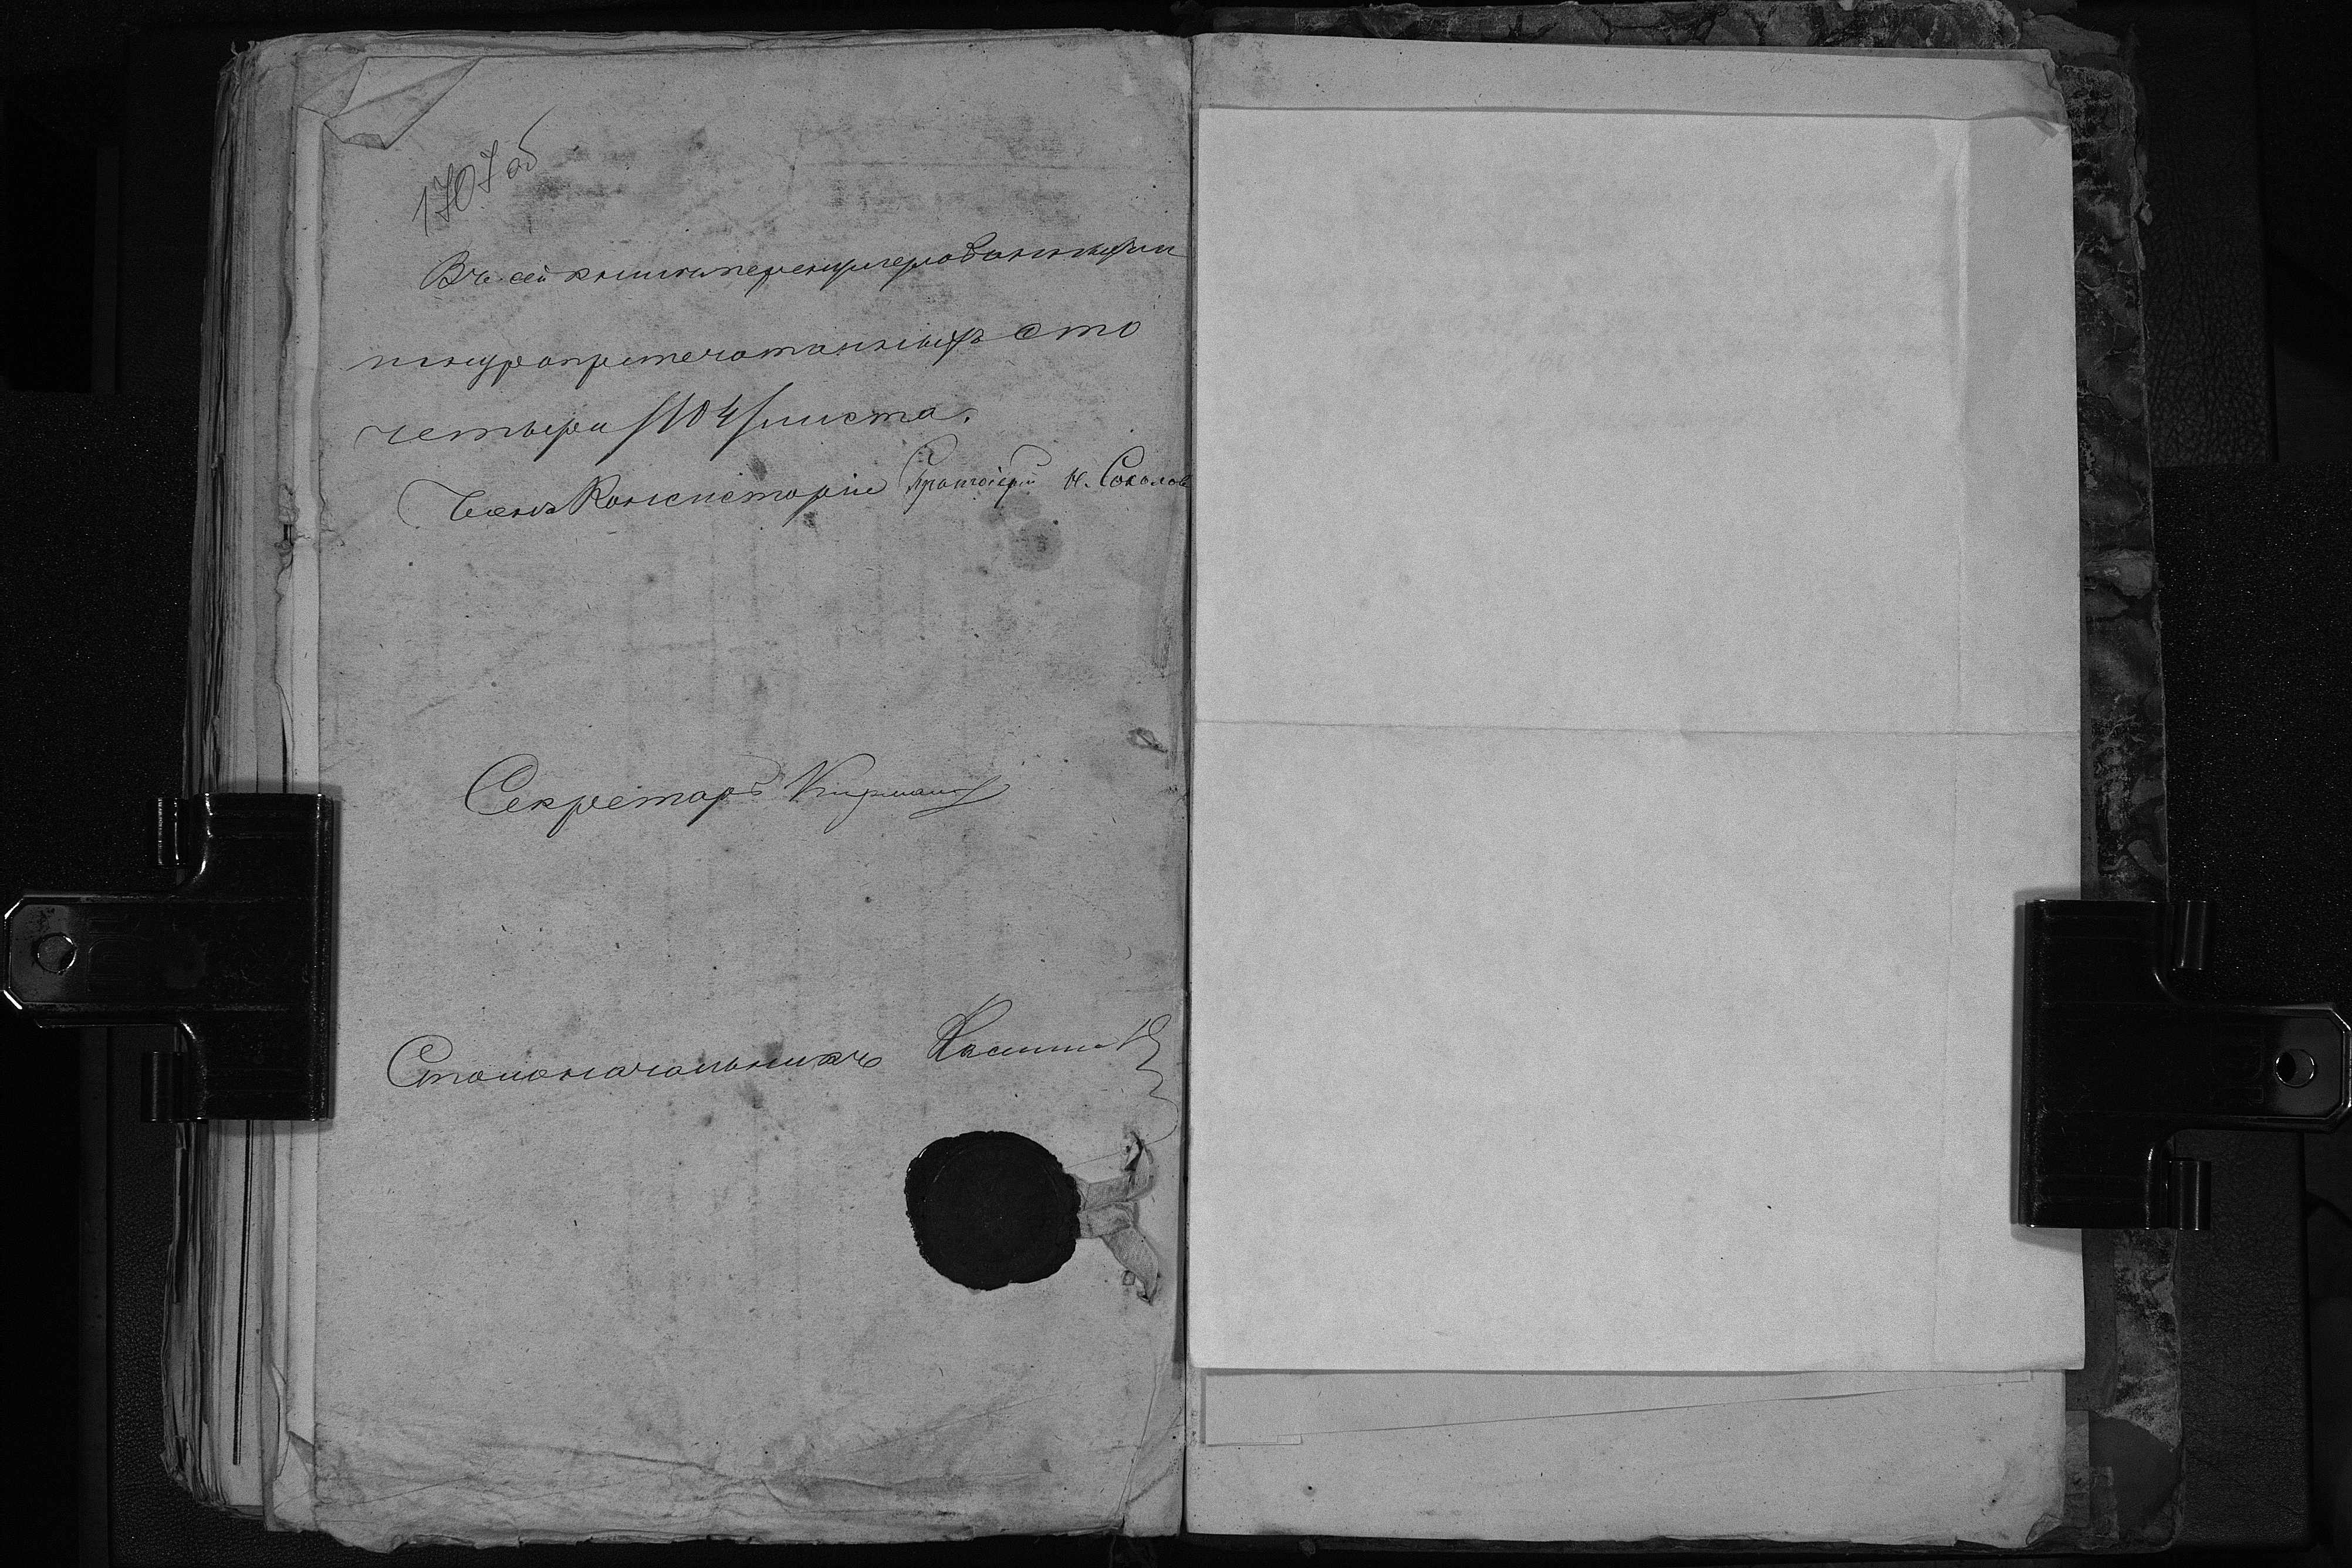 1707 об
Въ сей книги перенумерованныхъ
и шнуроприпечатанныхъ сто
четыри /104/ листа.
Членъ Консисторіи Протоіерей Н. Соколов
Секретарь
Столоначальникъ